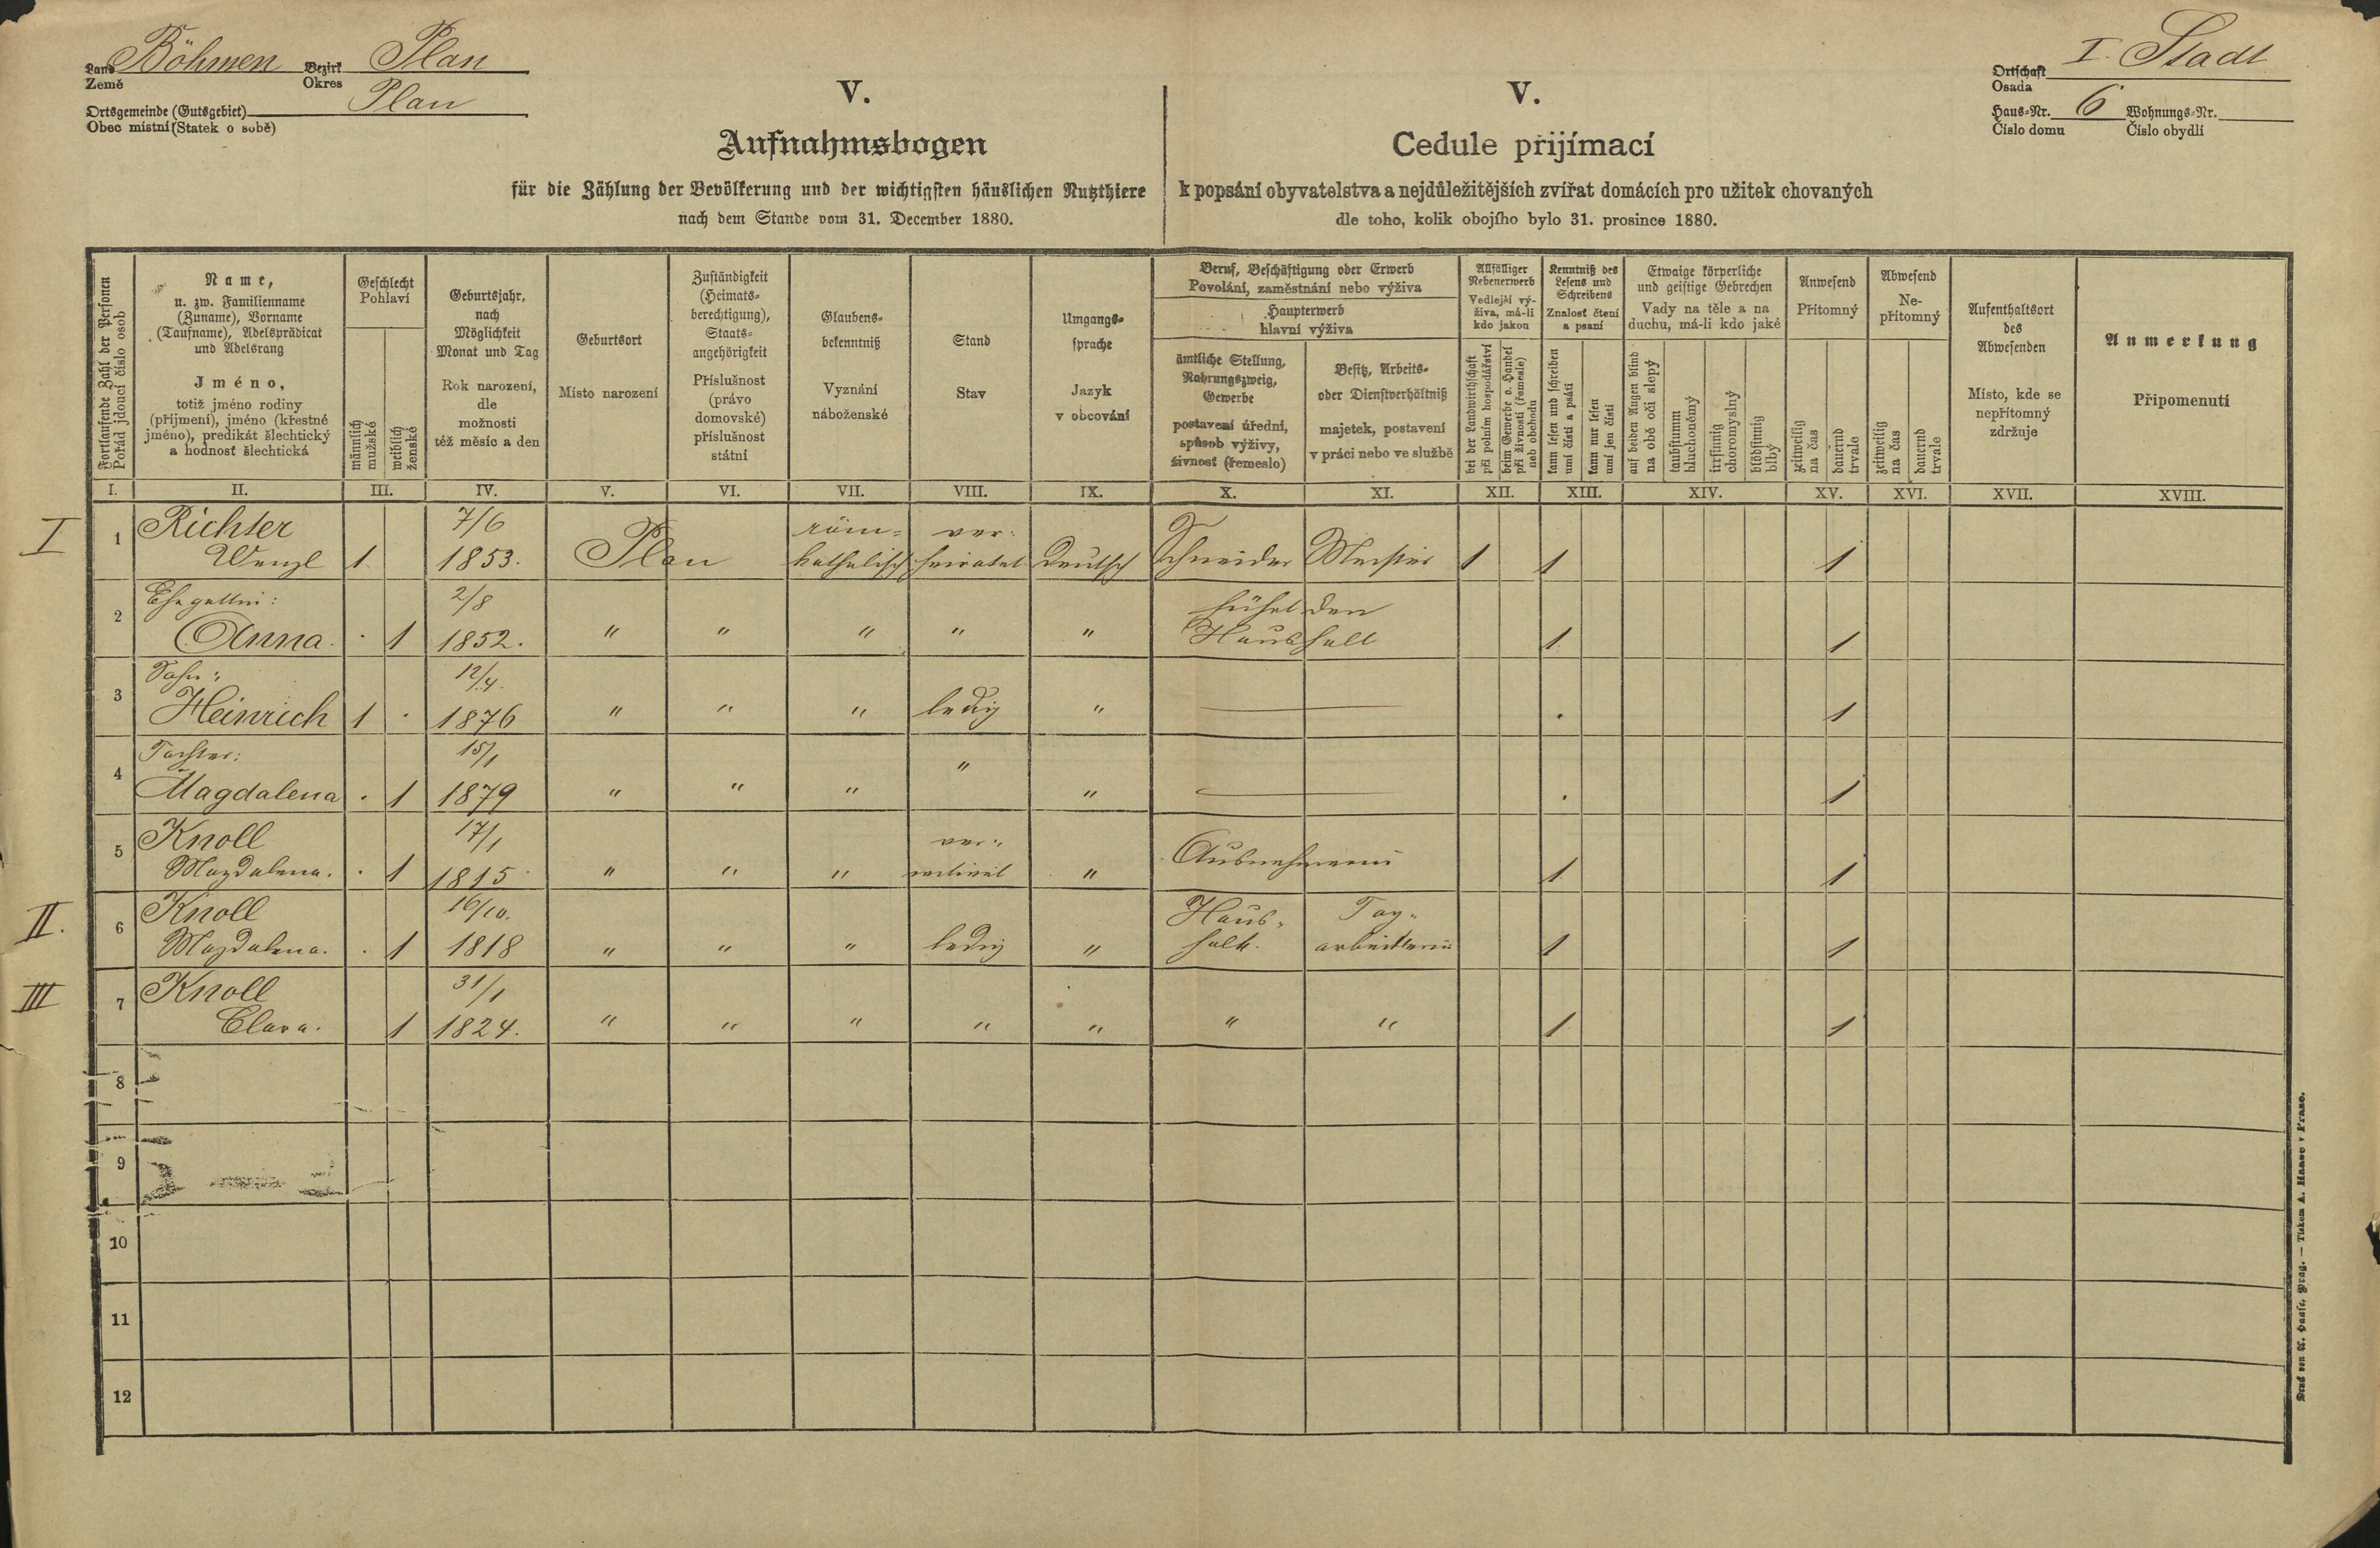 Land Böhmen Bezirk Plan
Země Okres
Ortsgemeinde (Gutsgebiet) Plan
Obec místní (Statek o sobě)
I. Stadt
Ortschaft
Osada
Haus-Nr. 6 Wohnungs-Nr.
Číslo domu Číslo obydlí
V.
Aufnahmsbogen
für die Zählung der Bevölkerung und der wichtigsten häuslichen Nutzthiere
nach dem Stande vom 31. December 1880.
V.
Cedule přijímací
k popsání obyvatelstva a nejdůležitějších zvířat domácích pro užitek chovaných
dle toho, kolik obojího bylo 31. prosince 1880.
Fortlaufende Zahl der Personen
Pořád jdoucí číslo osob
Name,
u. zw. Familienname
(Zuname), Vorname
(Taufname), Adelsprädicat
und Adelsrang
Jméno,
totiž jméno rodiny
(příjmení), jméno (křestné
jméno), predikát šlechtický
a hodnosť šlechtická
Geschlecht
Pohlaví
männlich
mužské
weiblich
ženské
Geburtsjahr,
nach
Möglichkeit
Monat und Tag
Rok narození,
dle
možnosti
též měsíc a den
Geburtsort
Místo narození
Zuständigkeit
(Heimats-
berechtigung),
Staats-
angehörigkeit
Příslušnost
(právo
domovské)
příslušnost
státní
Glaubens-
bekenntniß
Vyznání
náboženské
Stand
Stav
Umgangs-
sprache
Jazyk
v obcování
Beruf, Beschäftigung oder Erwerb
Povolání, zaměstnání nebo výživa
Haupterwerb
hlavní výživa
ämtliche Stellung,
Nahrungszweig,
Gewerbe
postavení úřední,
spůsob výživy,
živnosť (řemeslo)
Besitz, Arbeits-
oder Dienstverhältniß
majetek, postavení
v práci nebo ve službě
Allfälliger
Nebenerwerb
Vedlejší vý-
živa, má-li
kdo jakou
bei der Landwirthschaft
při polním hospodářství
beim Gewerbe o. Handel
při živnosti (řemesle)
neb obchodu
Kenntniß des
Lesens und
Schreibens
Znalosť čtení
a psaní
kann lesen und schreiben
umí čísti a psáti
kann nur lesen
umí jen čísti
Etwaige körperliche
und geistige Gebrechen
Vady na těle a na
duchu, má-li kdo jaké
auf beiden Augen blind
na obě oči slepý
taubstumm
hluchoněmý
irrsinnig
choromyslný
blödsinnig
blbý
Anwesend
Přítomný
zeitweilig
na čas
dauernd
trvale
Abwesend
Ne-
přítomný
zeitweilig
na čas
dauernd
trvale
Aufenthaltsort
des
Abwesenden
Místo, kde se
nepřítomný
zdržuje
Anmerkung
Připomenutí
I. II. III. IV. V. VI. VII. VIII. IX. X. XI. XII. XIII. XIV. XV. XVI. XVII. XVIII.
I 1 Richter 7/6 röm= ver:
Wenzl 1 1853. Plan katholisch heiratet Deutsch Schneider Meister 1 1 1
2 Ehegattin: 2/8 führt den
Anna. · 1 1852. " " " " " Haushalt 1 1
3 Sohn: 12/4.
Heinrich 1 · 1876 " " " ledig " — . 1
4 Tochter: 15/1 "
Magdalena · 1 1879 " " " " — . 1
5 Knoll 17/1 ver:
Magdalena. · 1 1815 " " " witwet " Ausnehmerin 1 1
II. 6 Knoll 16/10. Haus= Tag=
Magdalena. · 1 1818 " " " ledig " halt. arbeiterin 1 1
III 7 Knoll 31/1
Clara. 1 1824. " " " " " " " 1 1
8
9
10
11
12
Druck von A. Haase, Prag. — Tiskem A. Haase v Praze.